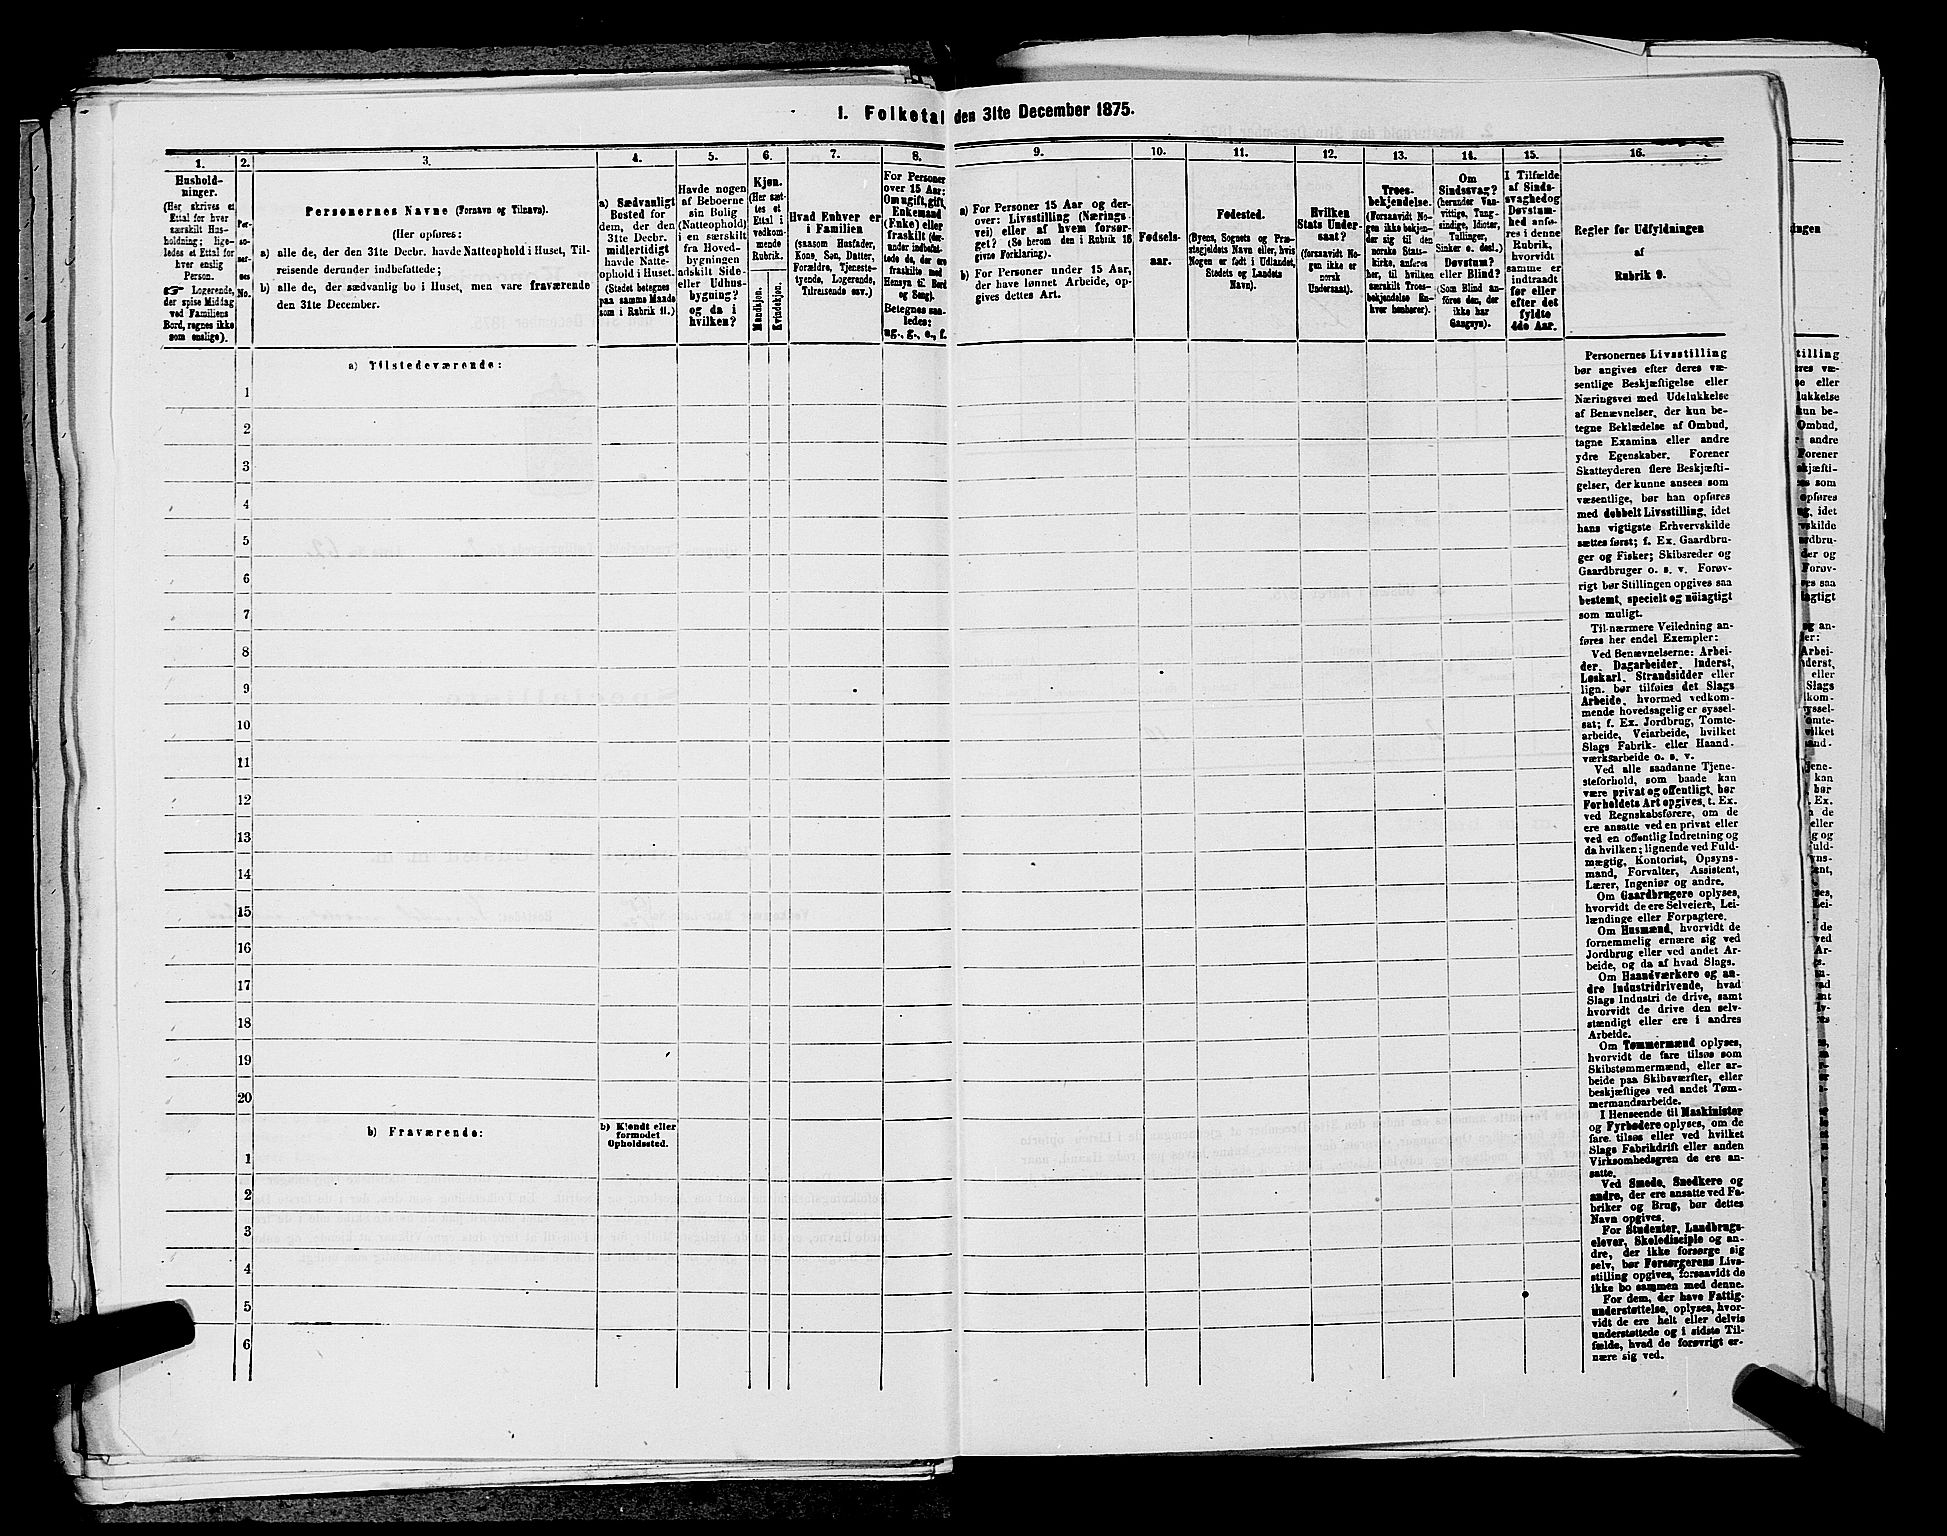 1. Folketal den 31te December 1875.
1.
Hushold-
ninger.
(Her skrives et
Ettal for hver
særskilt Hus-
holdning; lige-
ledes et Ettal for
hver enslig
Person.
☞ Logerende,
der spise Middag
ved Familiens
Bord, regnes ikke
som enslige).
2.
Per-
so-
ner-
nes
No.
3.
Personernes Navne (Fornavn og Tilnavn).
(Her opføres:
a) alle de, der den 31te Decbr. havde Natteophold i Huset, Til-
reisende derunder indbefattede;
b) alle de, der sædvanlig bo i Huset, men vare fraværende
den 31te December.
4.
a) Sædvanligt
Bosted for
dem, der den
31te Decbr.
midlertidigt
havde Natte-
ophold i Huset.
(Stedet betegnes
paa samme Maade
som i Rubrik 11.)
5.
Havde nogen
af Beboerne
sin Bolig
(Natteophold)
i en særskilt
fra Hoved-
bygningen
adskilt Side-
eller Udhus-
bygning?
og da i
hvilken?
6.
Kjøn.
(Her sæt-
tes et
Ettal i
vedkom-
mende
Rubrik.
Mandkjøn.
Kvindekjøn.
7.
Hvad Enhver er
i Familien
(saasom Husfader,
Kone, Søn, Datter,
Forældre, Tjeneste-
tyende, Logerende,
Tilreisende osv.)
8.
For Personer
over 15 Aar:
Om ugift, gift,
Enkemand
(Enke) eller
fraskilt (der-
under indbefat-
tede de, der ere
fraskilte med
Hensyn til Bord
og Seng).
Betegnes saa-
ledes:
ug., g., e., f.
9.
a) For Personer 15 Aar og der-
over: Livsstilling (Nærings
vei) eller af hvem forsør-
get? (Se herom den i Rubrik 16
givne Forklaring).
b) For Personer under 15 Aar,
der have lønnet Arbeide, op-
gives dettes Art.
10.
Fødsels-
aar.
11.
Fødested.
(Byens, Sognets og Præ-
stegjeldets Navn eller, hvis
Nogen er født i Udlandet,
Stedets og Landets
Navn).
12.
Hvilken
Stats Under-
saat?
(forsaavidt No-
gen ikke er
norsk
Undersaat).
13.
Troes-
bekjendelse.
(Forsaavidt No-
gen ikke bekjen-
der sig til den
norske Stats-
kirke, anføres
her, til hvilken
særskilt Troes-
bekjendelse En-
hver henhører).
14.
Om
Sindssvag?
(herunder Van-
vittige, Tung-
sindige, Idioter,
Tullinger,
Sinker o. desl.)
Døvstum?
eller Blind?
(Som Blind an-
føres den, der
ikke har
Gangsyn).
15.
I Tilfælde
af Sinds-
svaghed og
Døvstum-
hed anfø-
res i denne
Rubrik,
hvorvidt
samme er
indtraadt
før eller
efter det
fyldte
4de Aar.
16.
Regler for Udfyldningen
af
Rubrik 9.
a) Tilstedeværende:
1
2
3
4
5
6
7
8
9
10
11
12
13
14
15
16
17
18
19
20
b) Fraværende:
b) Kjendt eller
formodet
Opholdssted.
1
2
3
4
5
6
Personernes Livsstilling
bør angives efter deres væ-
sentlige Beskjæftigelse eller
Næringsvei med Udelukkelse
af Benævnelser, der kun be-
tegne Beklædelse af Ombud,
tagne Examina eller andre
ydre Egenskaber. Forener
Skatteyderen flere Beskjæfti-
gelser, der kunne ansees som
væsentlige, bør han opføres
med dobbelt Livsstilling, idet
hans vigtigste Erhvervskilde
sættes først; f. Ex. Gaardbru-
ger og Fisker; Skibsreder og
Gaardbruger o. s. v. Forøv-
rigt bør Stillingen opgives saa
bestemt, specielt og nöiagtigt
som muligt.
Til nærmere Veiledning an-
føres her endel Exempler:
Ved Benævnelserne: Arbei-
der, Dagarbeider, Inderst,
Løskarl, Strandsidder eller
lign. bør tilføies det Slags
Arbeide, hvormed vedkom-
mende hovedsagelig er syssel-
sat; f. Ex. Jordbrug, Tomte-
arbeide, Veiarbeide, hvilket
Slags Fabrik- eller Haand-
værksarbeide o. s. v.
Ved alle saadanne Tjene-
steforhold, som baade kan
være privat og offentligt, bør
Forholdets Art opgives, t. Ex.
ved Regnskabsførere, om de
ere ansatte ved en privat eller
ved en offentlig Indretning og
da hvilken; lignende ved Fuld-
mægtig, Kontorist, Opsyns-
mand, Forvalter, Assistent,
Lærer, Ingeniør og andre.
Om Gaardbrugere oplyses,
hvorvidt de ere Selveiere, Lei-
lændinge eller Forpagtere.
Om Husmænd, hvorvidt de
fornemmelig ernære sig ved
Jordbrug eller ved andet Ar-
beide, og da af hvad Slags.
Om Haandværkere og an-
dre Industridrivende, hvad
Slags Industri de drive, samt
hvorvidt de drive den selv-
stændigt eller ere i andres
Arbeide.
Om Tømmermænd oplyses,
hvorvidt de fare tilsøs som
Skibstømmermænd, eller ar-
beide paa Skibsværfter, eller
beskjæftiges ved andet Tøm-
mermandsarbeide.
I Henseende til Maskinister
og Fyrbødere oplyses, om de
fare tilsøs eller ved hvilket
Slags Fabrikdrift eller anden
Virksomhedsgren de ere an-
satte.
Ved Smede, Snedkere og
andre, der ere ansatte ved Fa-
briker og Brug, bør dettes
Navn opgives.
For Studenter, Landbrugs-
elever, Skoledisciple og an-
dre, der ikke forsørge sig
selv, bør Forsørgerens Livs-
stilling opgives, forsaavidt de
ikke bo sammen med denne.
For dem, der have Fattig-
understøttelse, oplyses, hvor-
vidt de ere helt eller delvis
understøttede og i sidste Til-
fælde, hvad de forøvrigt er-
nære sig ved.